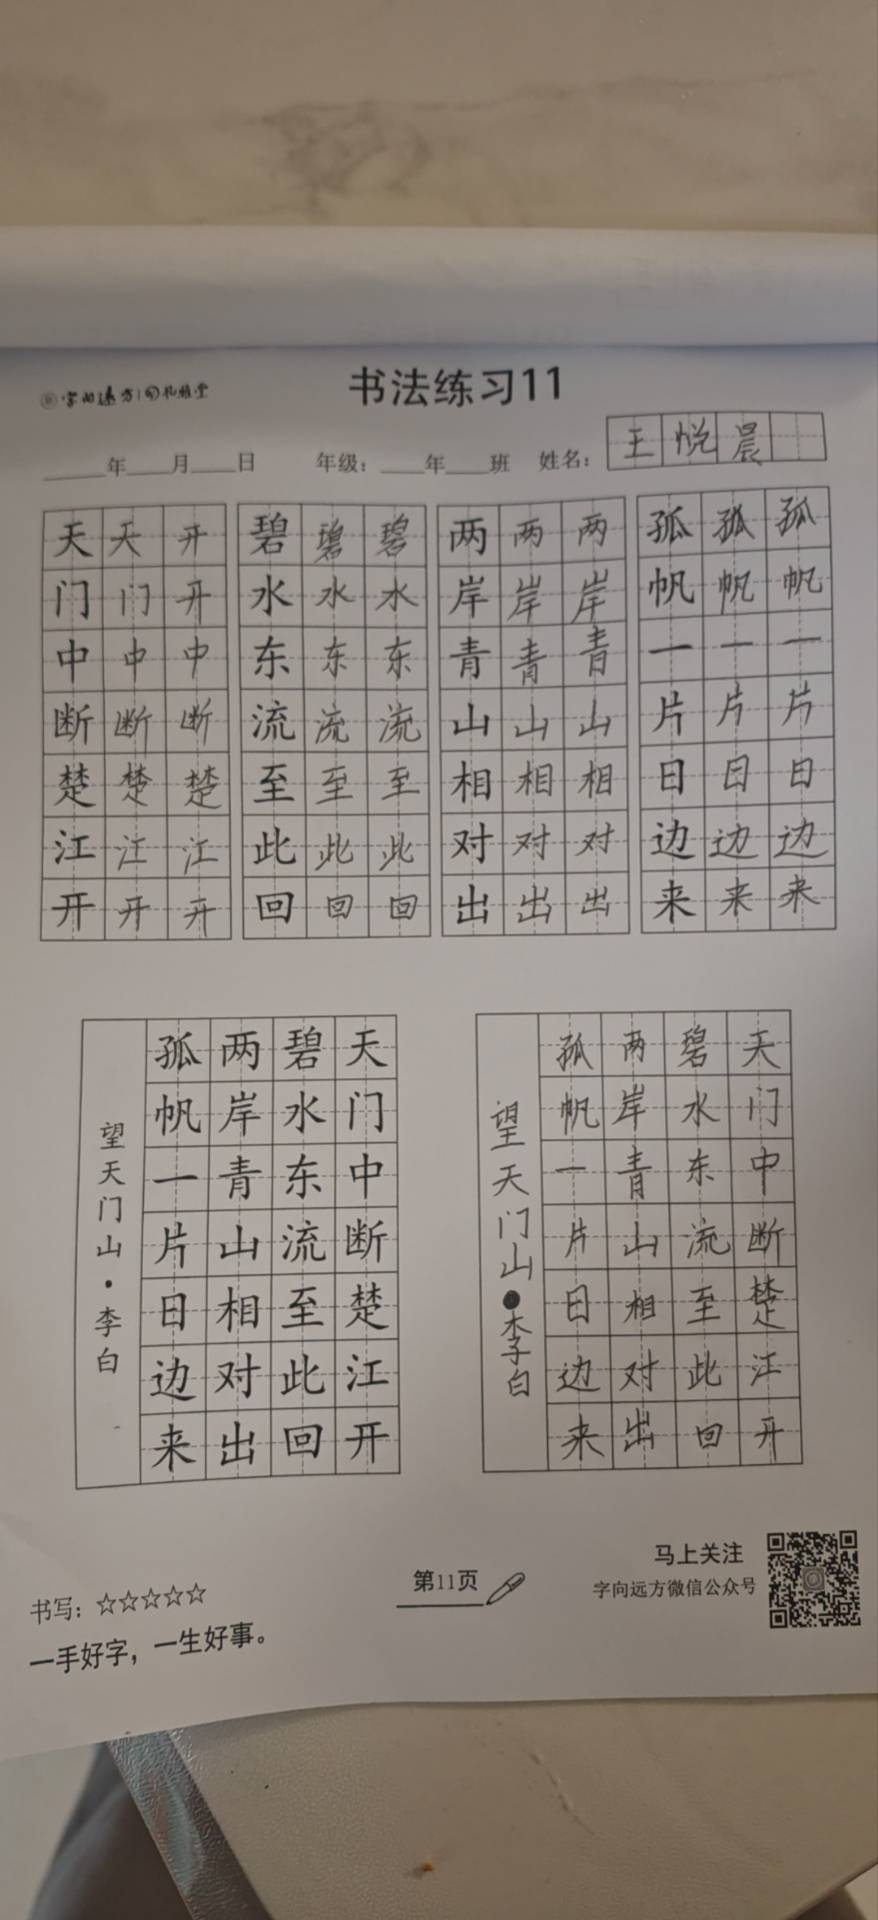 字向远方
书法练习11
年 月 日 年级： 年 班 姓名： 王悦晨
天天开 碧碧碧 两两两 孤孤孤
门门开 水水水 岸岸岸 帆帆帆
中中中 东东东 青青青 一一一
断断断 流流流 山山山 片片片
楚楚楚 至至至 相相相 日日日
江江江 此此此 对对对 边边边
开开开 回回回 出出出 来来来
天门中断楚江开
碧水东流至此回
两岸青山相对出
孤帆一片日边来
望天门山·李白
天门中断楚江开
碧水东流至此回
两岸青山相对出
孤帆一片日边来
望天门山·李白
书写：☆☆☆☆☆
一手好字，一生好事。
第11页
马上关注
字向远方微信公众号